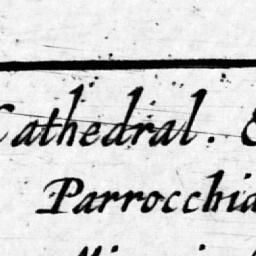 Cathedral.
Parrocchia